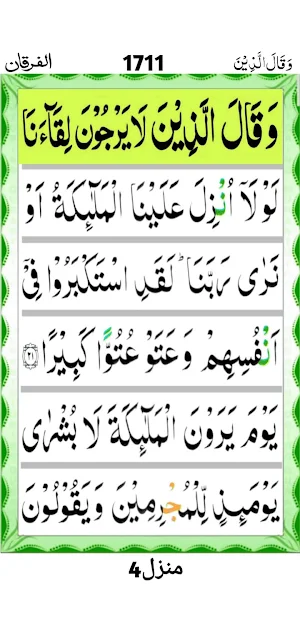 وَقَالَ الَّذِيْنَ 1711 الفرقان
وَقَالَ الَّذِيْنَ لَا يَرْجُوْنَ لِقَآءَنَا
لَوْلَاۤ اُنْزِلَ عَلَيْنَا الْمَلٰٓئِكَةُ اَوْ
نَرٰى رَبَّنَا ؕ لَقَدِ اسْتَكْبَرُوْا فِىْۤ
اَنْفُسِهِمْ وَعَتَوْ عُتُوًّا كَبِيْرًا ۝۲۱
يَوْمَ يَرَوْنَ الْمَلٰٓئِكَةَ لَا بُشْرٰى
يَوْمَئِذٍ لِّلْمُجْرِمِيْنَ وَيَقُوْلُوْنَ
منزل4